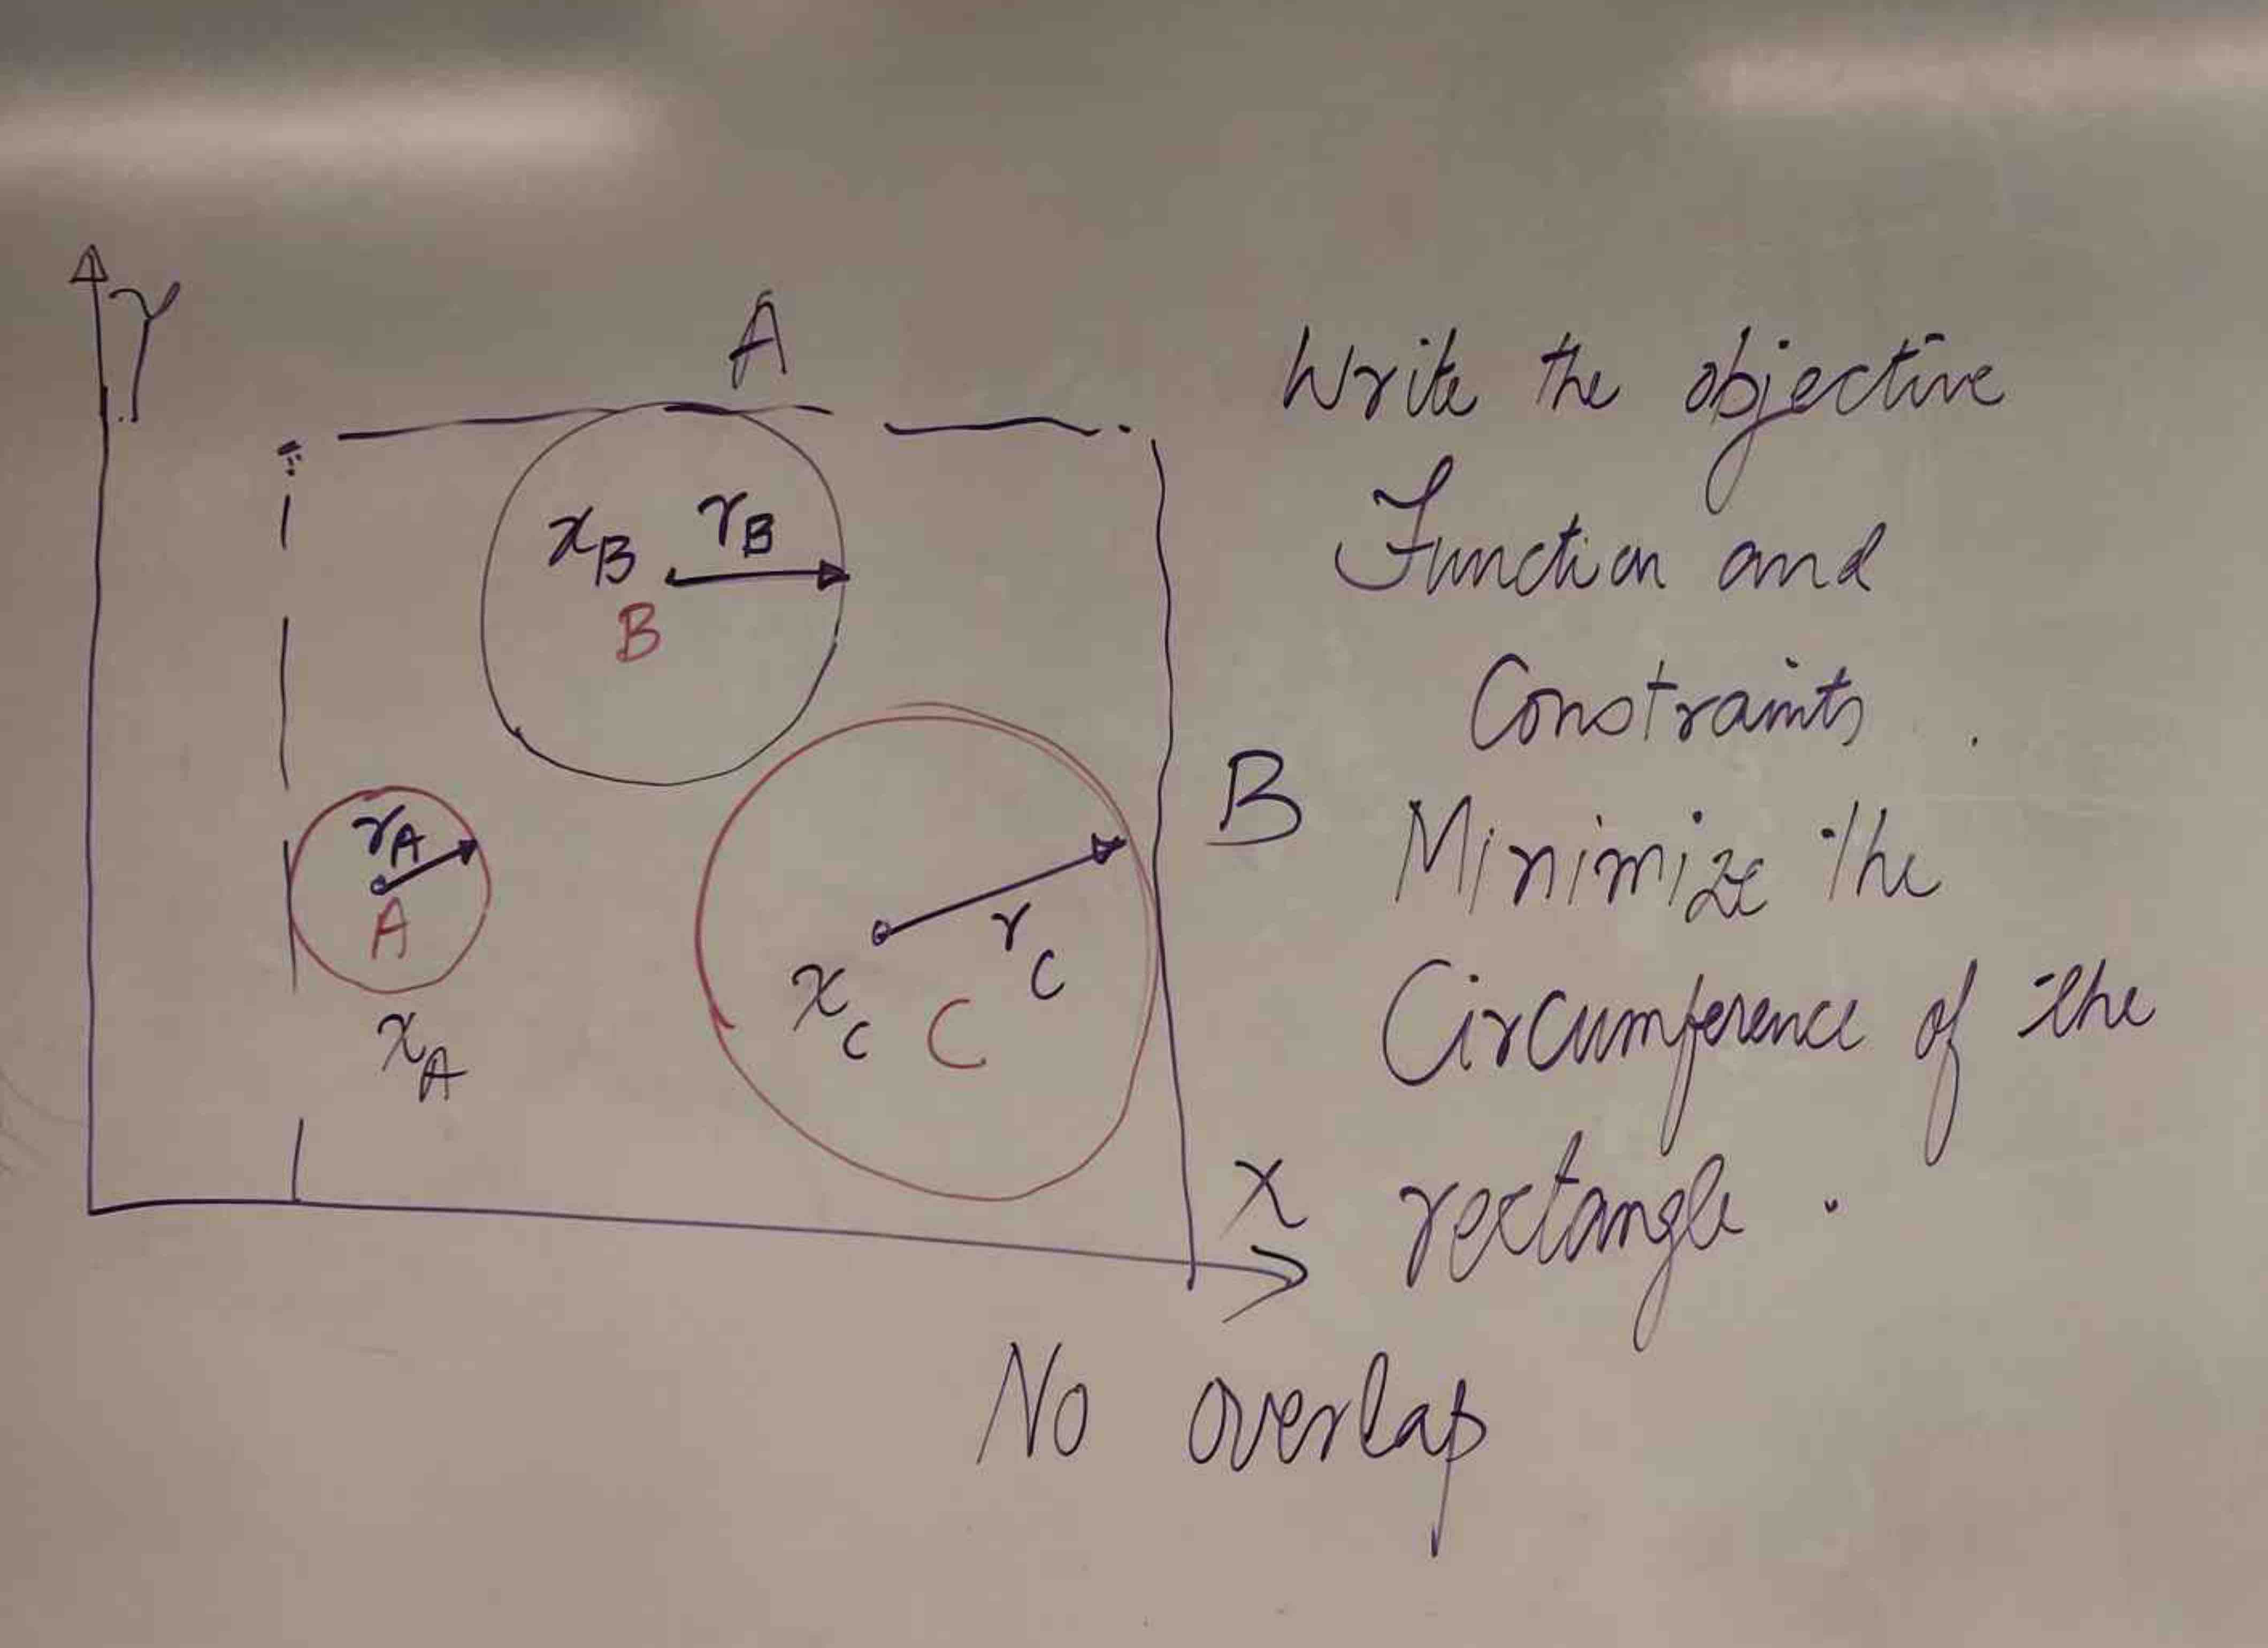 Y
A
x_B r_B
B
r_A
A
x_A
r_C
x_C
C
B
X
Write the objective
Function and
Constraints.
Minimize the
Circumference of the
rectangle.
No overlap